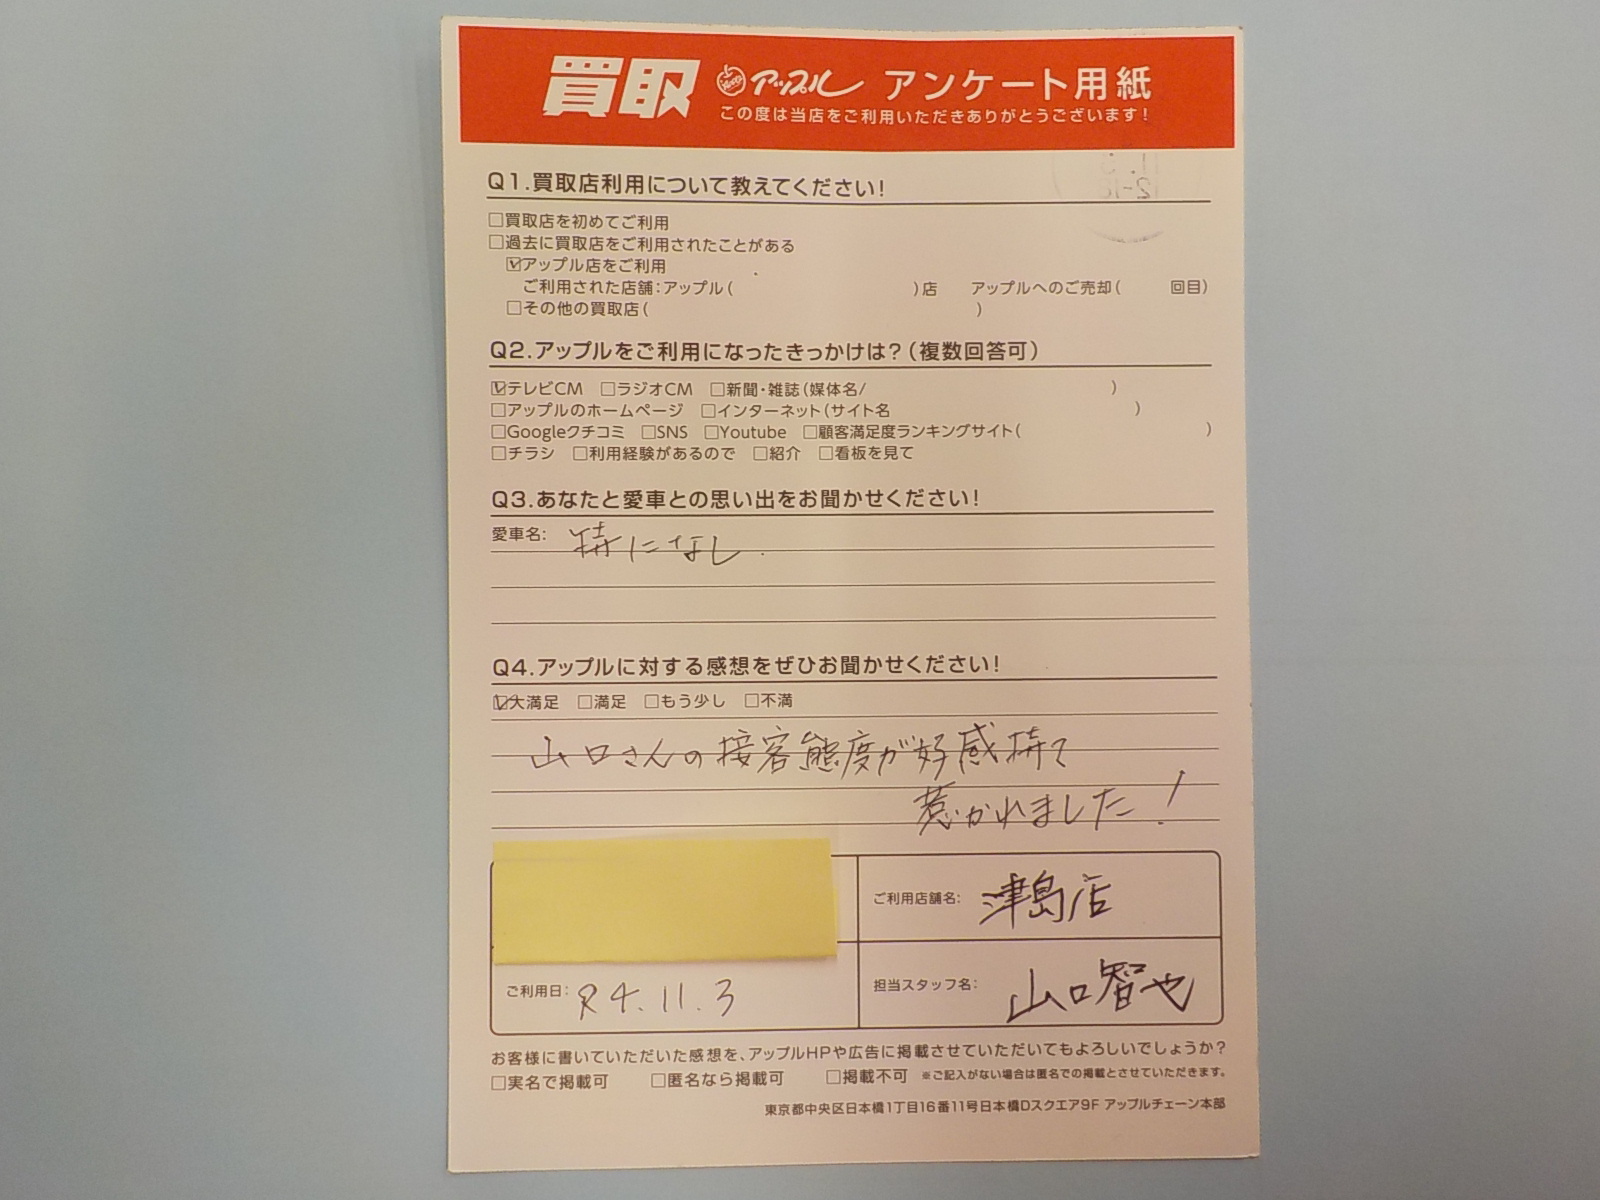 買取 アップル アンケート用紙
この度は当店をご利用いただきありがとうございます!
Q1.買取店利用について教えてください!
□買取店を初めてご利用
□過去に買取店をご利用されたことがある
☑アップル店をご利用
ご利用された店舗:アップル( )店 アップルへのご売却( 回目)
□その他の買取店( )
Q2.アップルをご利用になったきっかけは?(複数回答可)
☑テレビCM □ラジオCM □新聞・雑誌(媒体名/ )
□アップルのホームページ □インターネット(サイト名 )
□Googleクチコミ □SNS □Youtube □顧客満足度ランキングサイト( )
□チラシ □利用経験があるので □紹介 □看板を見て
Q3.あなたと愛車との思い出をお聞かせください!
愛車名: 特になし.
Q4.アップルに対する感想をぜひお聞かせください!
☑大満足 □満足 □もう少し □不満
山口さんの接客態度が好感持て
惹かれました!
ご利用店舗名: 津島店
ご利用日: R4.11.3
担当スタッフ名: 山口智也
お客様に書いていただいた感想を、アップルHPや広告に掲載させていただいてもよろしいでしょうか?
□実名で掲載可 □匿名なら掲載可 □掲載不可 ※ご記入がない場合は匿名での掲載とさせていただきます。
東京都中央区日本橋1丁目16番11号日本橋Dスクエア9F アップルチェーン本部